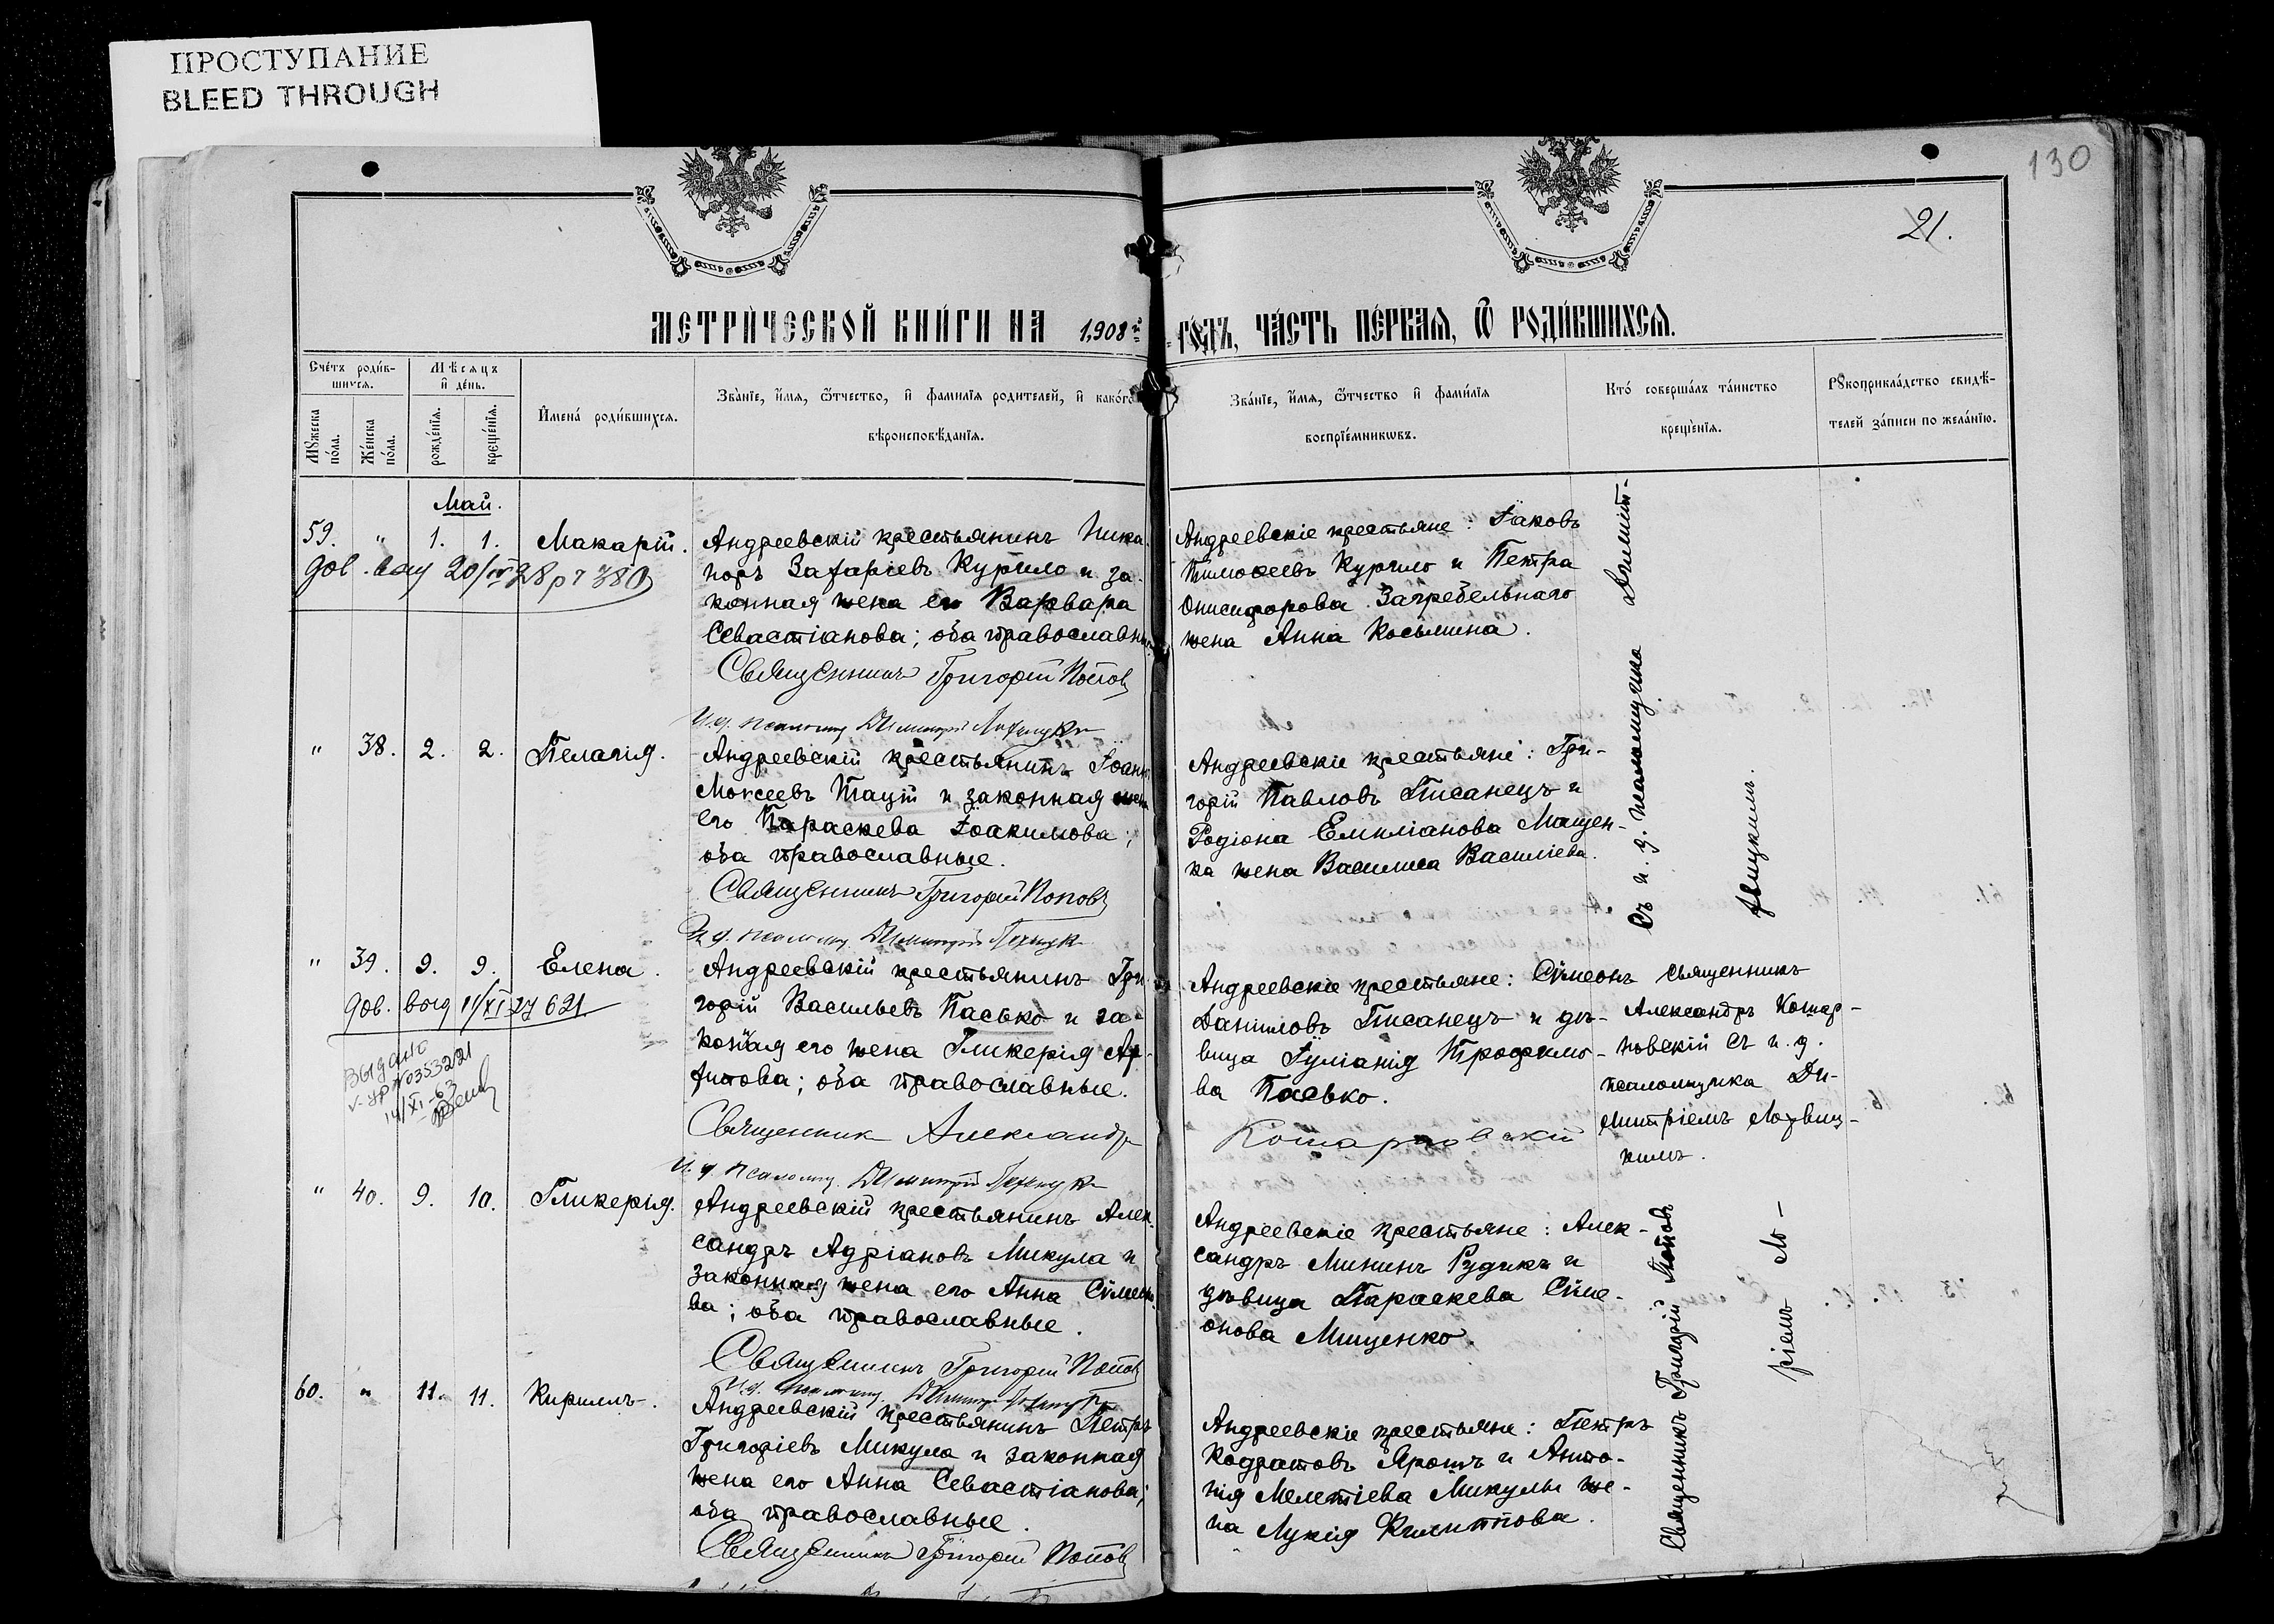 ПРОСТУПАНИЕ
BLEED THROUGH
130
21.
МЕТРИ́ЧЕСКОЙ КНИ́ГИ НА 1908й ГО́ДЪ, ЧА́СТЬ ПЕ́РВАЯ, Ѡ РОДИ́ВШИХСЯ.
Сче́тъ роди́в-
шихся.
Мѣсяцъ
и де́нь.
Мꙋжеска по́ла.
Же́нска по́ла.
рожде́нія.
креще́нія.
Имена́ роди́вшихся.
Зва́ніе, и́мя, ѻ́тчество, и фами́лія родителей, и како́го
вѣроисповѣ́данія.
Зва́ніе, и́мя, ѻ́тчество и фами́лія
воспріе́мниковъ.
Кто́ соверша́лъ та́инство
креще́нія.
Рꙋкоприкла́дство свидѣ́-
телей за́писи по жела́нію.
Май.
59. " 1. 1. Макарій.
Андреевскій крестьянинъ Ника-
норъ Захаріевъ Курило и за-
конная жена его Варвара
Севастіанова; оба православные
Священникъ Григорій Попов
Андреевскіе крестьяне: Іаковъ
Тимоѳеевъ Курило и Петра
Онисифорова Загребельнаго
жена Анна Косьмина.
" 38. 2. 2. Пелагія.
Андреевскій крестьянинъ Іоаннъ
Моисеевъ Тацій и законная жена
его Параскева Іоакимова;
оба православные.
Священникъ Григорій Поповъ
Андреевскіе крестьяне: Гри-
горій Павловъ Писанецъ и
Родіона Емиліанова Мащен-
ка жена Василиса Василіева.
" 39. 9. 9. Елена.
Андреевскій крестьянинъ Гри-
горій Васильевъ Пасько и за-
конная его жена Гликерія
оба православные.
Священник Александр
Андреевскіе крестьяне: Сѵмеонъ
Даніиловъ Писанецъ и дѣ-
вица Іуліанія Трофимо-
ва Пасько.
Священникъ
Александръ Кошар-
новскій съ и. д.
псаломщика Ди-
митріемъ
Выдано
14/XI-63
" 40. 9. 10. Гликерія.
Андреевскій крестьянинъ Алек-
сандръ Адріановъ Микула и
законная жена его Анна Сѵмеоно-
ва; оба православные.
Священникъ Григорій Попов
Андреевскіе крестьяне: Алек-
сандръ Мининъ Рудикъ и
дѣвица Параскева Сѵме-
онова Мищенко.
60. " 11. 11. Кириллъ.
Андреевскій крестьянинъ Петръ
Григоріевъ Микула и законная
жена его Анна Севастіанова;
оба православные.
Священникъ Григорій Попов
Андреевскіе крестьяне: Петръ
Кодратовъ Ярошъ и Анто-
нія Мелетіева Микулы же-
на Лукія Филиппова.
Священникъ Григорій Поповъ
Съ и. д. псаломщика Димит-
ріемъ